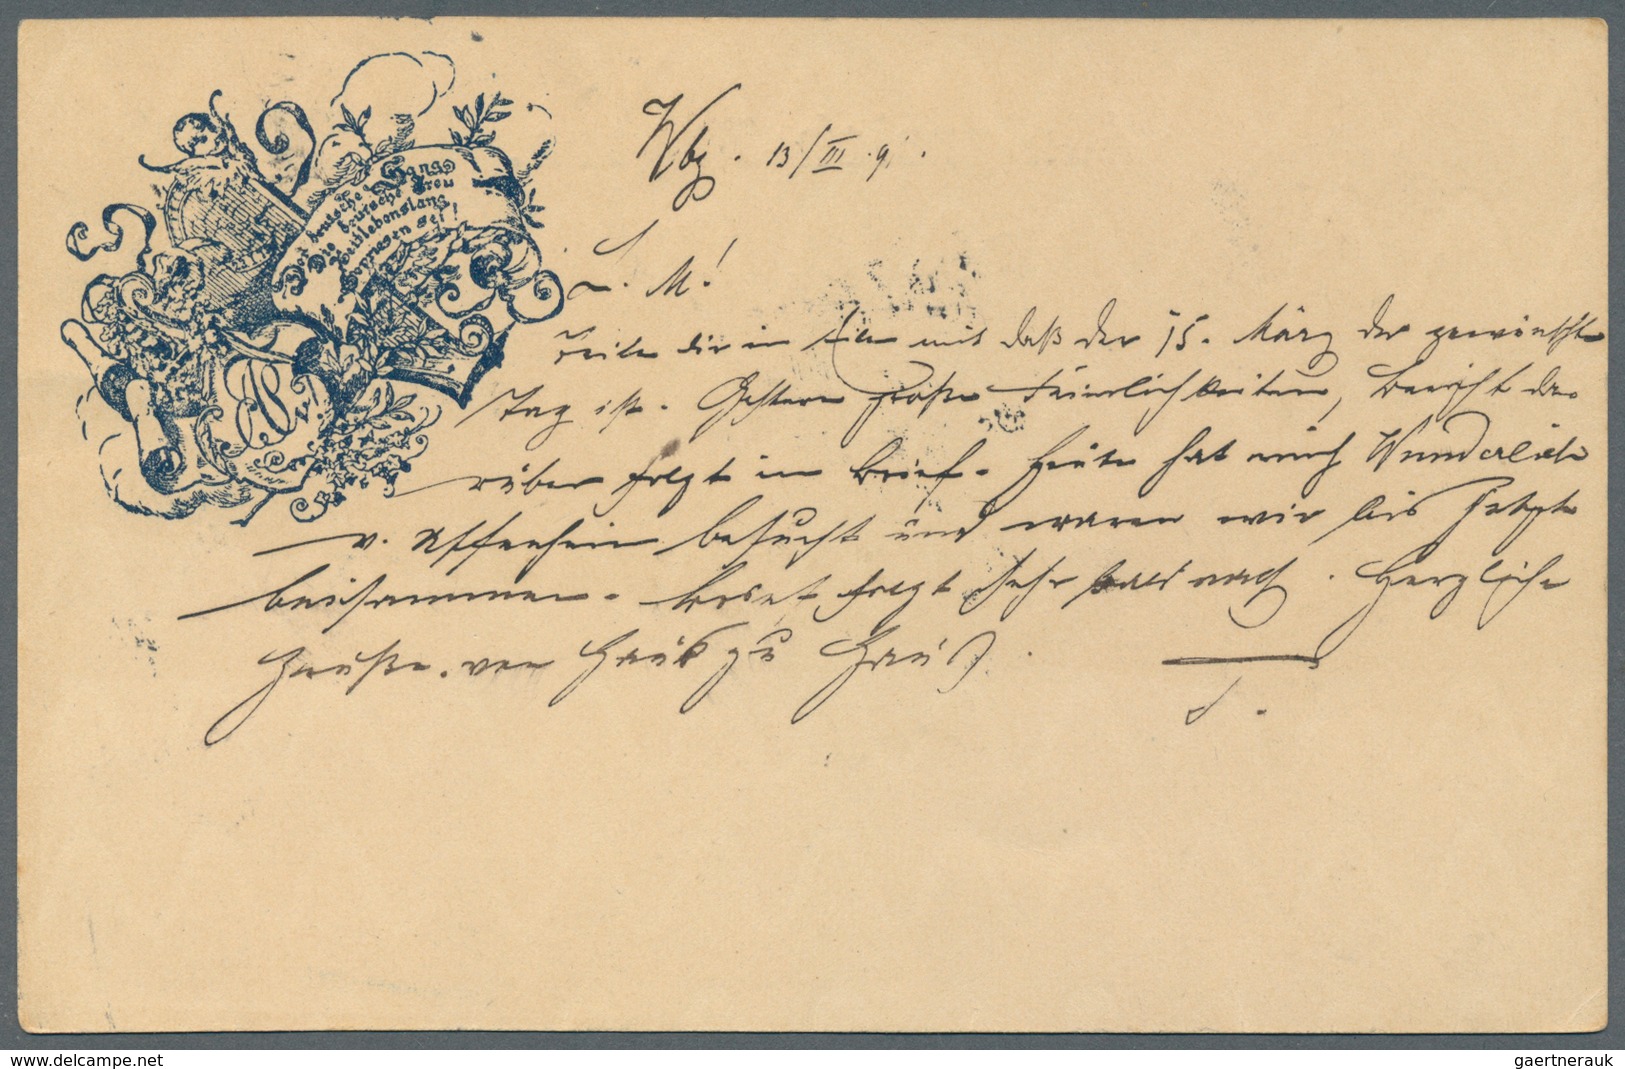 Der deutsche Sang
Die deutsche Treu
Zeitlebenslang
Gepriesen sei!
Wbg. 13/III.91.
L. M!
Teile dir in Eile mit daß der 15. März der gewünschte
Tag ist. Gestern große Feierlichkeiten, Bericht da-
rüber folgt im Brief. Heute hat mich Wunderlich
v. Uffenheim besucht und waren wir bis jetzt
beisammen. folgt sehr bald nach. Herzliche
Grüße von Haus zu Haus.
delcampe.net
gaertnerauk